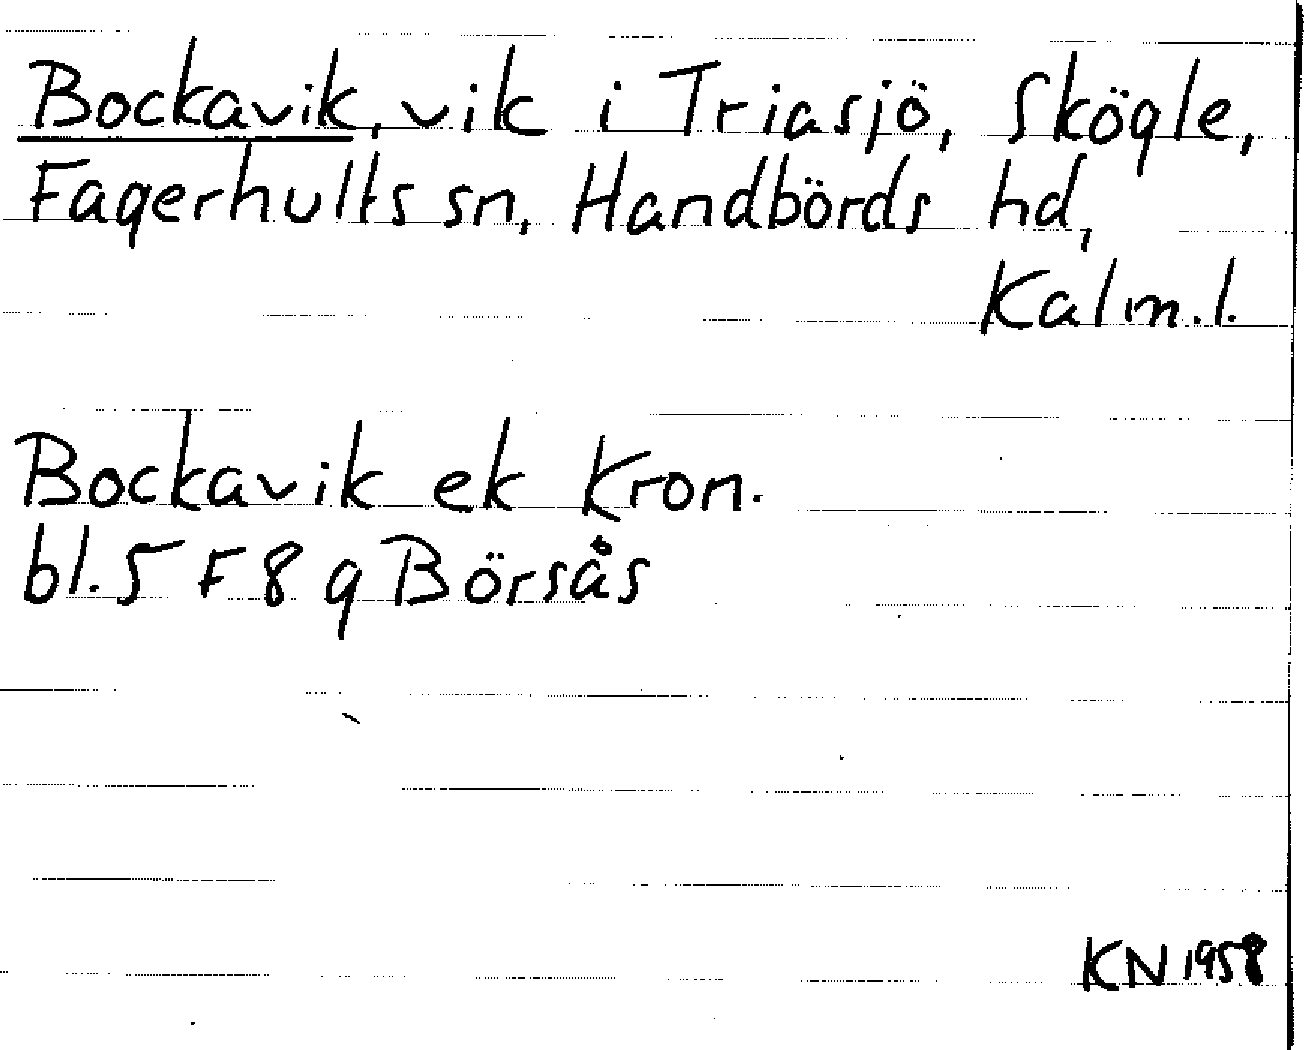 Bockavik, vik i Triasjö, Skögle,
Fagerhults sn, Handbörds hd,
Kalm.l.
Bockavik ek Kron.
bl. 5 F 8 g Börsås
KN 1958